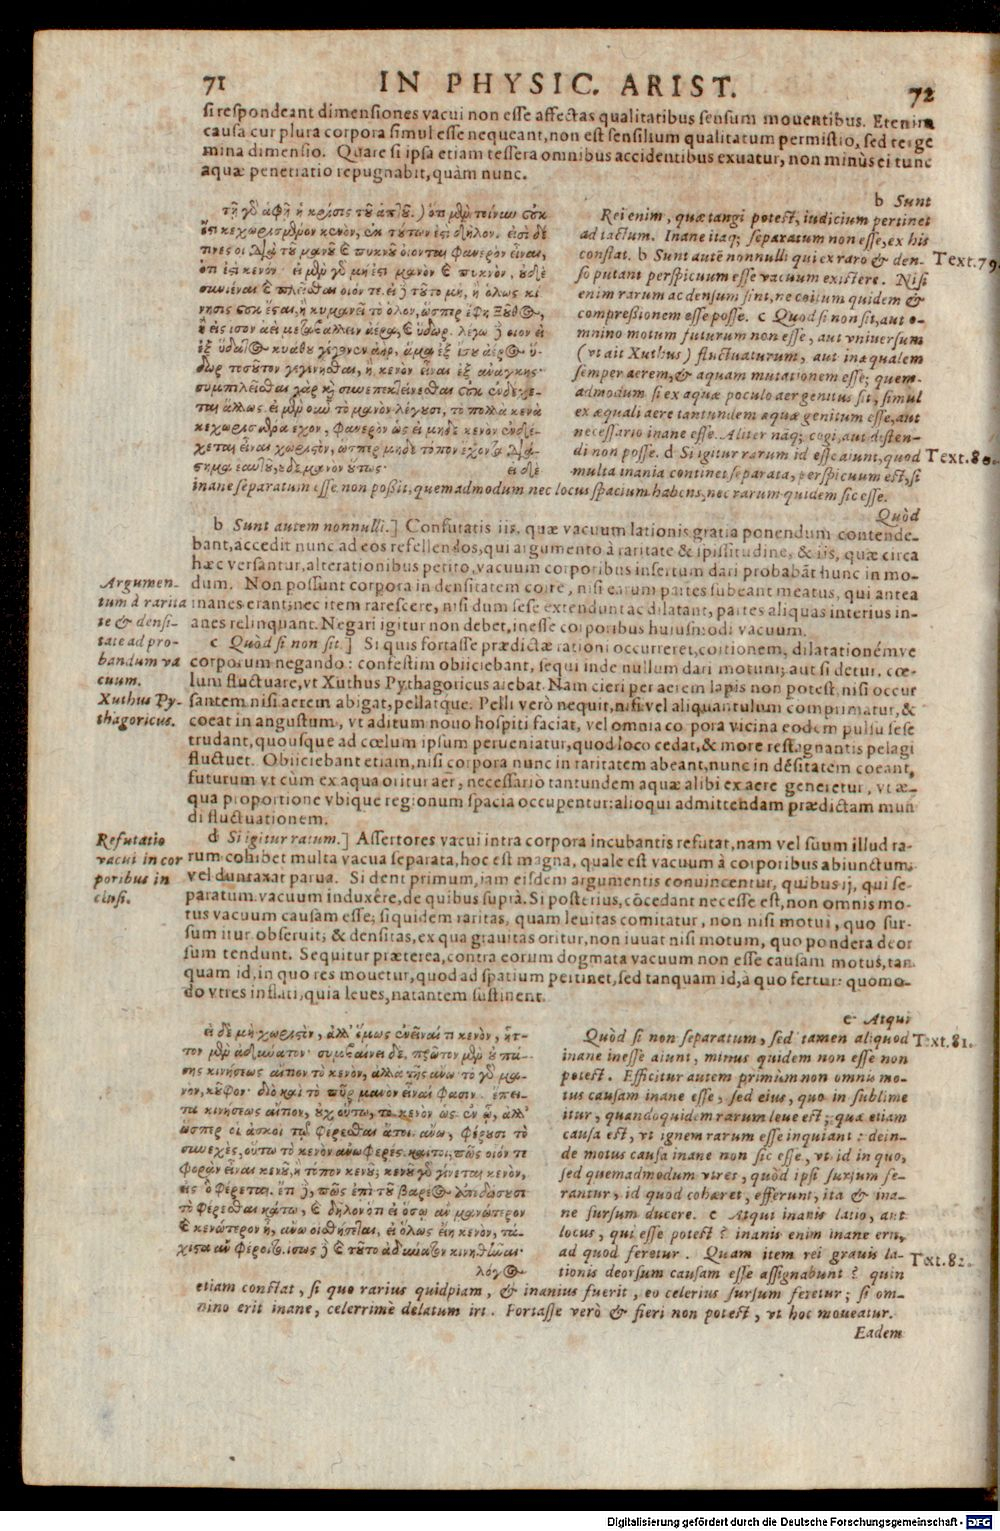 71 IN PHYSIC. ARIST. 72
si respondeant dimensiones vacui non esse affectas qualitatibus sensum mouentibus. Etenim
causa cur plura corpora simul esse nequeant, non est sensilium qualitatum permistio, sed terge
mina dimensio. Quare si ipsa etiam tessera omnibus accidentibus exuatur, non minùs ei tunc
aquæ penetratio repugnabit, quàm nunc.
τῇ γὰρ ἁφῇ ἡ κρίσις τοῦ ἁπτοῦ.) ὅτι μὲν τοίνυν οὐκ
ἔστι κεχωρισμένον κενὸν, ἐκ τούτων ἐστὶ δῆλον. εἰσὶ δέ
τινες οἳ διὰ τοῦ μανοῦ & πυκνοῦ οἴονται φανερὸν εἶναι,
ὅτι ἐστὶ κενόν. εἰ μὲν γὰρ μή ἐστι μανὸν & πυκνὸν, οὐδὲ
συνιέναι & πιλεῖσθαι οἷόν τε. εἰ δὲ τοῦτο μὴ, ἢ ὅλως κί
νησις οὐκ ἔσται, ἢ κυμανεῖ τὸ ὅλον, ὥσπερ ἔφη Ξοῦθος,
ἢ εἰς ἴσον ἀεὶ μεταβάλλειν ἀέρα, & ὕδωρ. λέγω δὲ οἷον εἰ
ἐξ ὕδατος κυάθου γέγονεν ἀὴρ, ἅμα ἐξ ἴσου ἀέρος ὕ-
δωρ τοσοῦτον γεγενῆσθαι, ἢ κενὸν εἶναι ἐξ ἀνάγκης·
συμπιλεῖσθαι γὰρ καὶ συνεπεκτείνεσθαι οὐκ ἐνδέχε-
ται ἄλλως. εἰ μὲν οὖν τὸ μανὸν λέγουσι, τὸ πολλὰ κενὰ
κεχωρισμένα ἔχον, φανερὸν ὡς εἰ μηδὲ κενὸν ἐνδέ-
χεται εἶναι χωριστὸν, ὥσπερ μηδὲ τόπον ἔχοντα διά-
στημα ἑαυτοῦ, οὐδὲ μανὸν οὕτως. εἰ δὲ
b Sunt
Rei enim, quæ tangi potest, iudicium pertinet
ad tactum. Inane itaq; separatum non esse, ex his
constat. b Sunt autē nonnulli qui ex raro & den- Text.79.
so putant perspicuum esse vacuum existere. Nisi
enim rarum ac densum sint, ne coitum quidem &
compressionem esse posse. c Quod si non sit, aut o-
mnino motum futurum non esse, aut vniuersum
(vt ait Xuthus) fluctuaturum, aut inæqualem
semper aerem, & aquam mutationem esse; quem-
admodum si ex aquæ poculo aer genitus sit, simul
ex æquali aere tantundem aquæ genitum esse, aut
necessario inane esse. Aliter nāq; cogi, aut disten-
di non posse. d Si igitur rarum id esse aiunt, quod Text.80.
multa inania continet separata, perspicuum est, si
inane separatum esse non poßit, quemadmodum nec locus spacium habens, nec rarum quidem sic esse.
Quòd
b Sunt autem nonnulli.] Confutatis iis, quæ vacuum lationis gratia ponendum contende-
bant, accedit nunc ad eos refellendos, qui argumento à raritate & spissitudine, & iis, quæ circa
hæc versantur, alterationibus petito, vacuum corporibus insertum dari probabāt hunc in mo-
Argumen- dum. Non possunt corpora in densitatem coire, nisi earum partes subeant meatus, qui antea
tum à rarita inanes erant; nec item rarescere, nisi dum sese extendunt ac dilatant, partes aliquas interius in-
te & densi- anes relinquant. Negari igitur non debet, inesse corporibus huiusmodi vacuum.
tate ad pro- c Quòd si non sit.] Si quis fortasse prædictæ rationi occurreret, coitionem, dilatationémve
bandum va corporum negando: confestim obiiciebant, sequi inde nullum dari motum; aut si detur, cœ-
cuum. lum fluctuare, vt Xuthus Pythagoricus aiebat. Nam cieri per aerem lapis non potest, nisi occur
Xuthus Py- santem nisi aerem abigat, pellatque. Pelli verò nequit, nisi vel aliquantulum comprimatur, &
thagoricus. coeat in angustum, vt aditum nouo hospiti faciat, vel omnia corpora vicina eodem pulsu sese
trudant, quousque ad cœlum ipsum perueniatur, quod loco cedat, & more restagnantis pelagi
fluctuet. Obiiciebant etiam, nisi corpora nunc in raritatem abeant, nunc in dēsitatem coeant,
futurum vt cùm ex aqua oritur aër, necessariò tantundem aquæ alibi ex aere generetur, vt æ-
qua proportione vbique regionum spacia occupentur: alioqui admittendam prædictam mun
di fluctuationem.
Refutatio d Si igitur rarum.] Assertores vacui intra corpora incubantis refutat, nam vel suum illud ra-
vacui in cor rum cohibet multa vacua separata, hoc est magna, quale est vacuum à corporibus abiunctum,
poribus in vel duntaxat parua. Si dent primum, iam eisdem argumentis conuincentur, quibus ij, qui se-
clusi. paratum vacuum induxêre, de quibus suprà. Si posterius, cōcedant necesse est, non omnis mo-
tus vacuum causam esse; siquidem raritas, quam leuitas comitatur, non nisi motui, quo sur-
sum itur obseruit; & densitas, ex qua grauitas oritur, non iuuat nisi motum, quo pondera deor
sum tendunt. Sequitur præterea, contra eorum dogmata vacuum non esse causam motus, tan
quam id, in quo res mouetur, quod ad spatium pertinet, sed tanquam id, à quo fertur: quomo-
do vtres inflati, quia leues, natantem sustinent.
εἰ δὲ μὴ χωριστὸν, ἀλλ' ὅμως ἐνεῖναί τι κενὸν, ἧτ-
τον μὲν ἀδύνατον· συμβαίνει δὲ, πρῶτον μὲν οὐ πά-
σης κινήσεως αἴτιον τὸ κενὸν, ἀλλὰ τῆς ἄνω· τὸ γὰρ μα-
νὸν, κοῦφον· διὸ καὶ τὸ πῦρ μανὸν εἶναί φασιν. ἔπει-
τα κινήσεως αἴτιον, οὐχ οὕτω, τὸ κενὸν ὡς ἐν ᾧ, ἀλλ'
ὥσπερ οἱ ἀσκοὶ τῷ φέρεσθαι αὐτοὶ ἄνω, φέρουσι τὸ
συνεχὲς, οὕτω τὸ κενὸν ἀνωφερές. καίτοι, πῶς οἷόν τε
φορὰν εἶναι κενοῦ, ἢ τόπον κενοῦ; κενοῦ γὰρ γίνεται κενὸν,
εἰς ὃ φέρεται. ἔτι δὲ, πῶς ἐπὶ τοῦ βαρέος ἀποδώσουσι
τὸ φέρεσθαι κάτω, & δῆλον ὅτι εἰ ὅσῳ ἂν μανώτερον
& κενώτερον ᾖ, ἄνω οἰσθήσεται, εἰ ὅλως εἴη κενὸν, τά-
χιστα ἂν φέροιτο. ἴσως δὲ & τοῦτο ἀδύνατον κινηθῆναι·
λόγος
c Atqui
Quòd si non separatum, sed tamen aliquod Text.81.
inane inesse aiunt, minus quidem non esse non
potest. Efficitur autem primùm non omnis mo-
tus causam inane esse, sed eius, quo in sublime
itur, quandoquidem rarum leue est; quæ etiam
causa est, vt ignem rarum esse inquiant: dein-
de motus causa inane non sic esse, vt id in quo,
sed quemadmodum vtres, quòd ipsi sursum fe-
rantur, id quod cohæret, efferunt, ita & ina-
ne sursum ducere. c Atqui inanis latio, aut
locus, qui esse potest? inanis enim inane erit,
ad quod feretur. Quam item rei grauis la- Text.82.
tionis deorsum causam esse assignabunt? quin
etiam constat, si quo rarius quidpiam, & inanius fuerit, eo celerius sursum feretur; si om-
nino erit inane, celerrimè delatum iri. Fortasse verò & fieri non potest, vt hoc moueatur.
Eadem
Digitalisierung gefördert durch die Deutsche Forschungsgemeinschaft - DFG